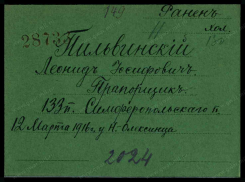 149 Раненъ
28737 хол.
Пильвинскій
Леонидъ Іосифовичъ
Прапорщикъ
133 п. Симферопольскаго п.
12 Марта 1916 г. у д.
2024